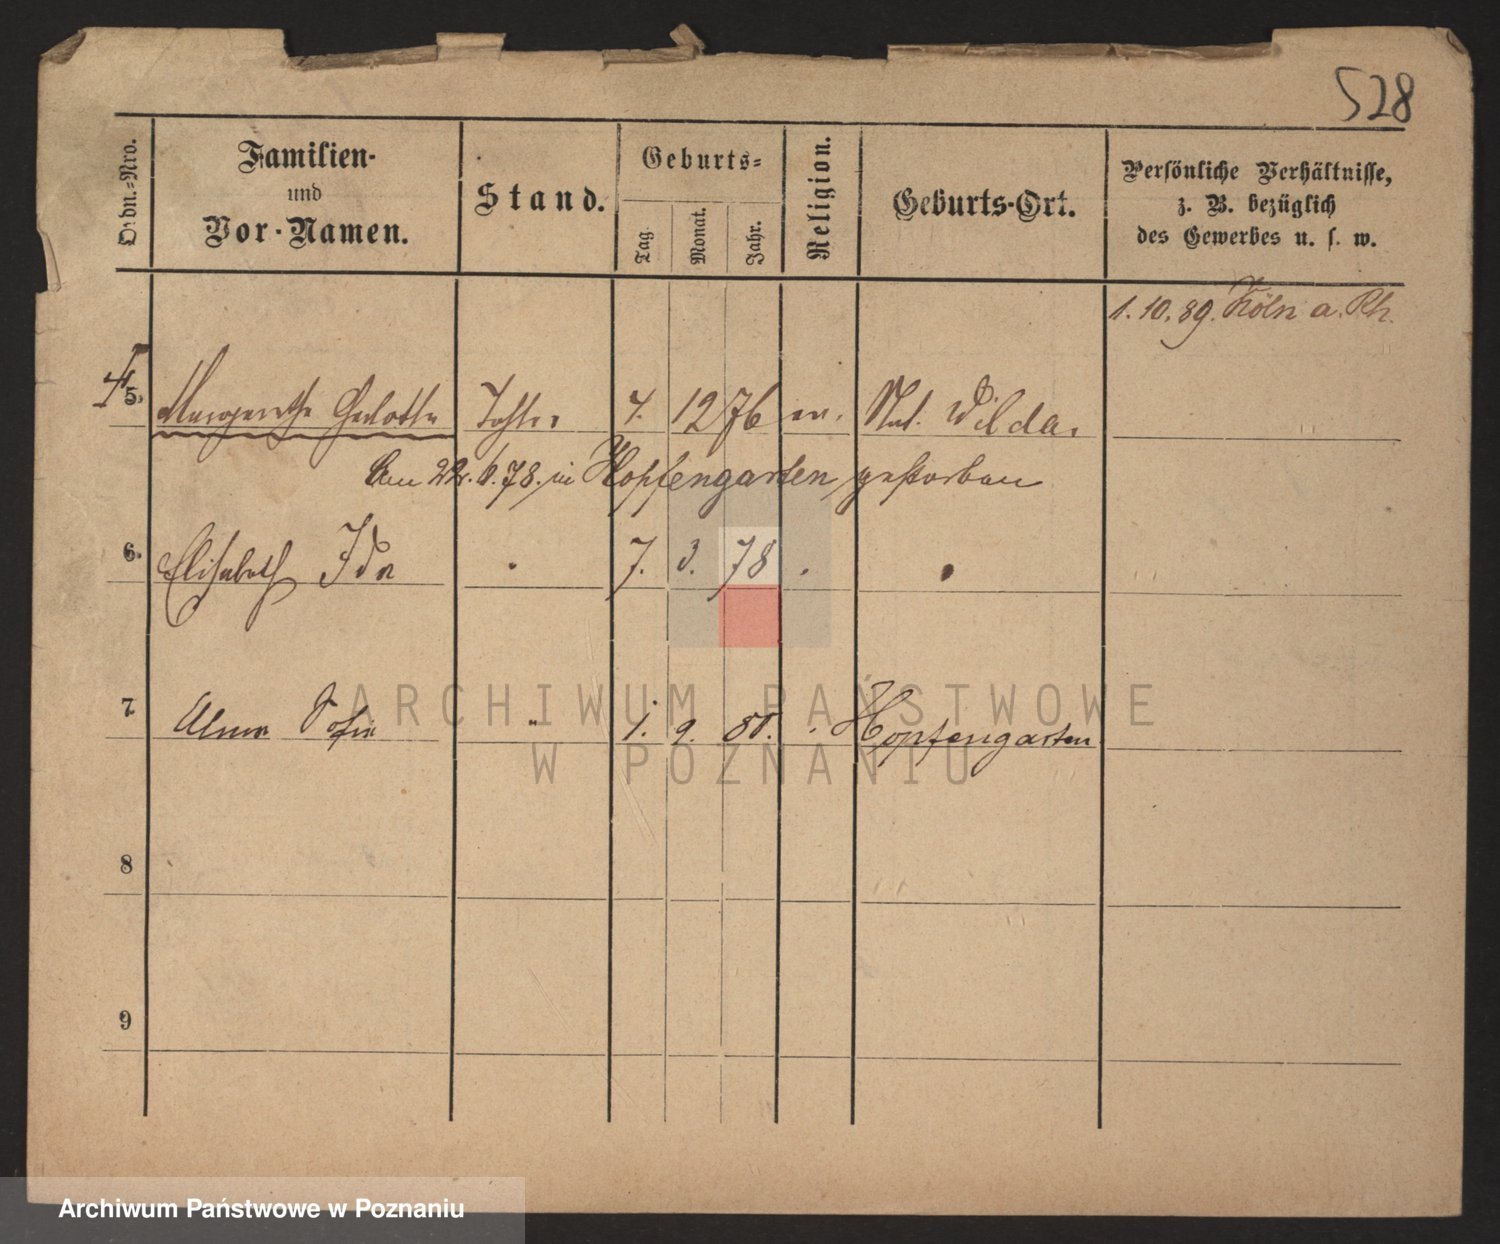 528
Ordn.-Nro.
Familien-
und
Vor-Namen.
Stand.
Geburts-
Tag.
Monat.
Jahr.
Religion.
Geburts-Ort.
Persönliche Verhältnisse,
z. B. bezüglich
des Gewerbes u. s. w.
1. 10. 89. Köln a. Rh.
5. Margarethe Tochter 7. 12 76 ev. Wilda.
in Hopfengarten gestorben
6. Elisabeth Ida 7. 3. 78
7 Alma Sofie " 1. 9. 80. Hopfengarten
8
9
ARCHIWUM PAŃSTWOWE
W POZNANIU
Archiwum Państwowe w Poznaniu